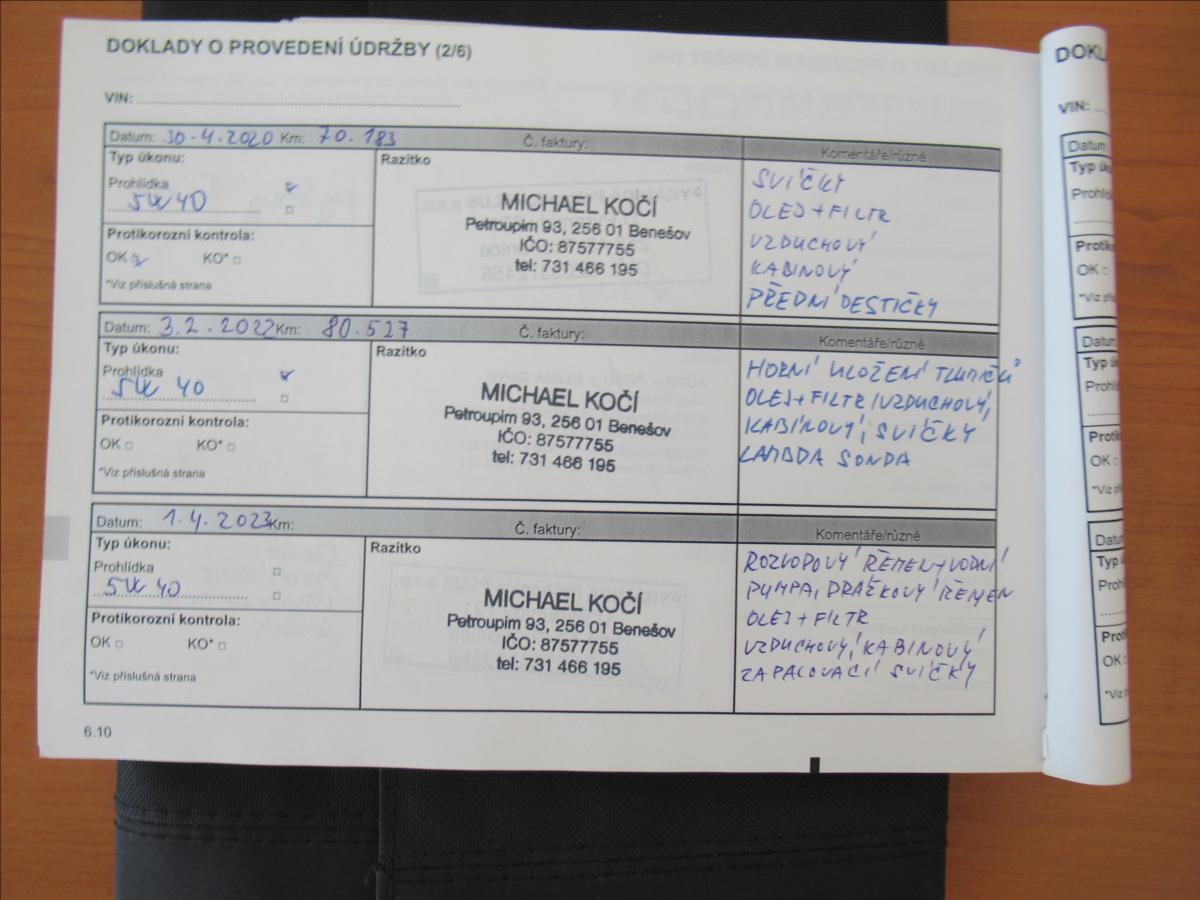 DOKLADY O PROVEDENÍ ÚDRŽBY (2/6)
VIN:
Datum: 30.4.2020 Km: 70.183 Č. faktury: Komentáře/různé
Typ úkonu:
Prohlídka
5W40
Protikorozní kontrola:
OK KO*
*Viz příslušná strana
Razítko
MICHAEL KOČÍ
Petroupim 93, 256 01 Benešov
IČO: 87577755
tel: 731 466 195
SVÍČKY
OLEJ + FILTR
VZDUCHOVÝ
KABINOVÝ
PŘEDNÍ DESTIČKY
Datum: 3.2.2022 Km: 80.527 Č. faktury: Komentáře/různé
Typ úkonu:
Prohlídka
5W 40
Protikorozní kontrola:
OK KO*
*Viz příslušná strana
Razítko
MICHAEL KOČÍ
Petroupim 93, 256 01 Benešov
IČO: 87577755
tel: 731 466 195
HORNÍ ULOŽENÍ TLUMIČŮ
OLEJ + FILTR, VZDUCHOVÝ,
KABINOVÝ, SVÍČKY
LAMBDA SONDA
Datum: 1.4.2023 Km: Č. faktury: Komentáře/různé
Typ úkonu:
Prohlídka
5W 40
Protikorozní kontrola:
OK KO*
*Viz příslušná strana
Razítko
MICHAEL KOČÍ
Petroupim 93, 256 01 Benešov
IČO: 87577755
tel: 731 466 195
ROZVODOVÝ ŘEMEN, VODNÍ
PUMPA, DRÁŽKOVÝ ŘEMEN
OLEJ + FILTR
VZDUCHOVÝ, KABINOVÝ
ZAPALOVACÍ SVÍČKY
6.10
DOKL
VIN:
Datum
Typ úk
Prohlí
Protik
OK
*Viz pří
Datum
Typ
Prohl
Protik
OK
*Viz p
Datu
Typ
Proh
Pro
OK
*Viz